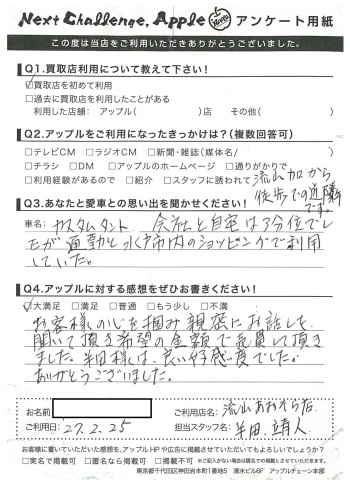 Next Challenge, Apple アンケート用紙
この度は当店をご利用いただきありがとうございました。
Q1.買取店利用について教えて下さい!
☑買取店を初めて利用
□過去に買取店を利用したことがある
利用した店舗:アップル( )店 その他( )
Q2.アップルをご利用になったきっかけは?(複数回答可)
□テレビCM □ラジオCM □新聞・雑誌(媒体名/ )
□チラシ □DM □アップルのホームページ □通りがかりで
□利用経験があるので □紹介 □スタッフに誘われて
流山加から
徒歩での近隣
です。
Q3.あなたと愛車との思い出を聞かせください!
車名: カスタムタント. 会社と自宅は3分位でし
たが通勤と水戸市内のショッピングで利用
していた。
Q4.アップルに対する感想をぜひお書きください!
☑大満足 □満足 □普通 □もう少し □不満
お客様の心を掴み親密にお話しを
聞いて頂き希望の金額で売買して頂き
ました。半田様は、良い好感度でした。
ありがとうございました。
お名前
ご利用店名: 流山おおぞら店.
ご利用日: 27.2.25
担当スタッフ名: 半田 靖人.
お客様に書いていただいた感想を、アップルHPや広告に掲載させていただいてもよろしいでしょうか?
□実名で掲載可 □匿名なら掲載可 □掲載不可 ※ご記入がない場合は匿名での掲載とさせていただきます。
東京都千代田区神田岩本町1番地5 清水ビル6F アップルチェーン本部